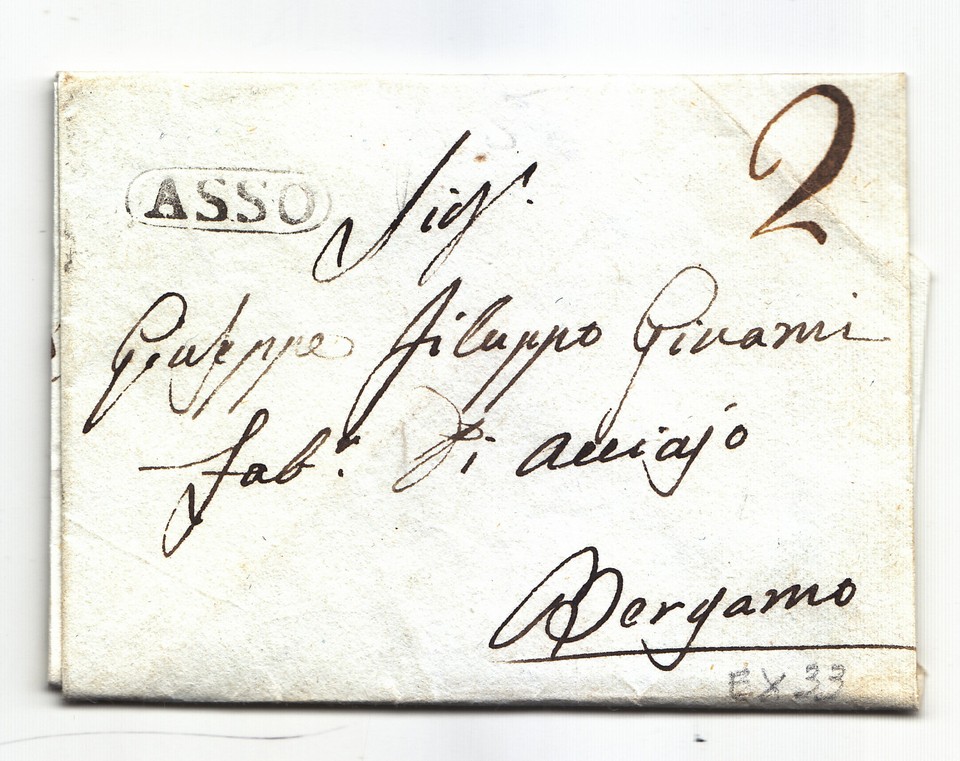 ASSO
2
Sigr.
Giuseppe Filippo Giovanni
Fabr. di acciajo
Bergamo
EX 33